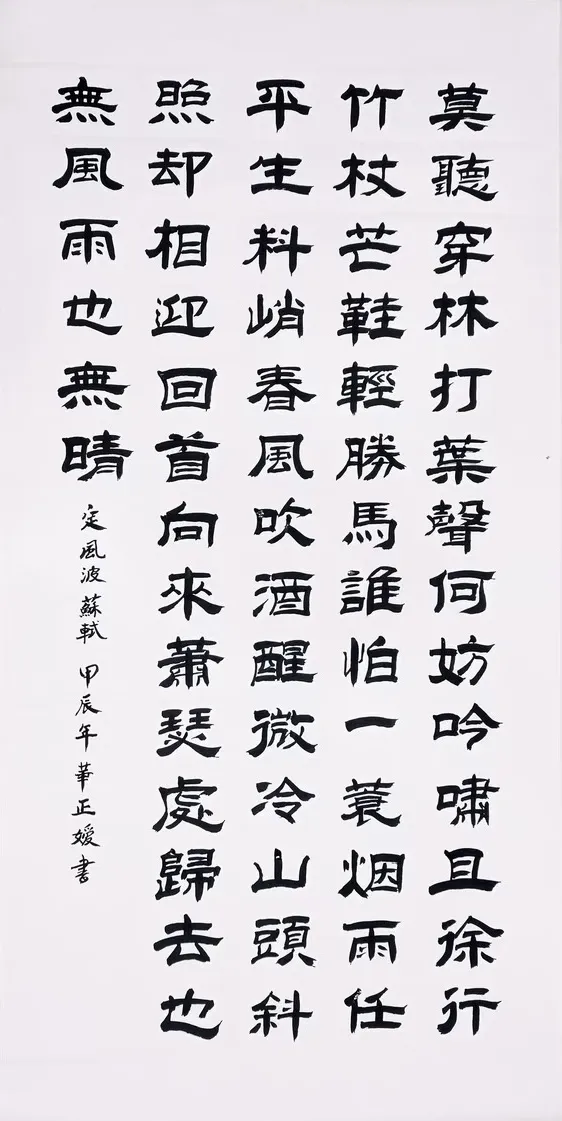 莫聽穿林打葉聲何妨吟嘯且徐行
竹杖芒鞋輕勝馬誰怕一蓑烟雨任
平生料峭春風吹酒醒微冷山頭斜
照却相迎回首向來蕭瑟處歸去也
無風雨也無晴
定風波蘇軾 甲辰年華正嫒書